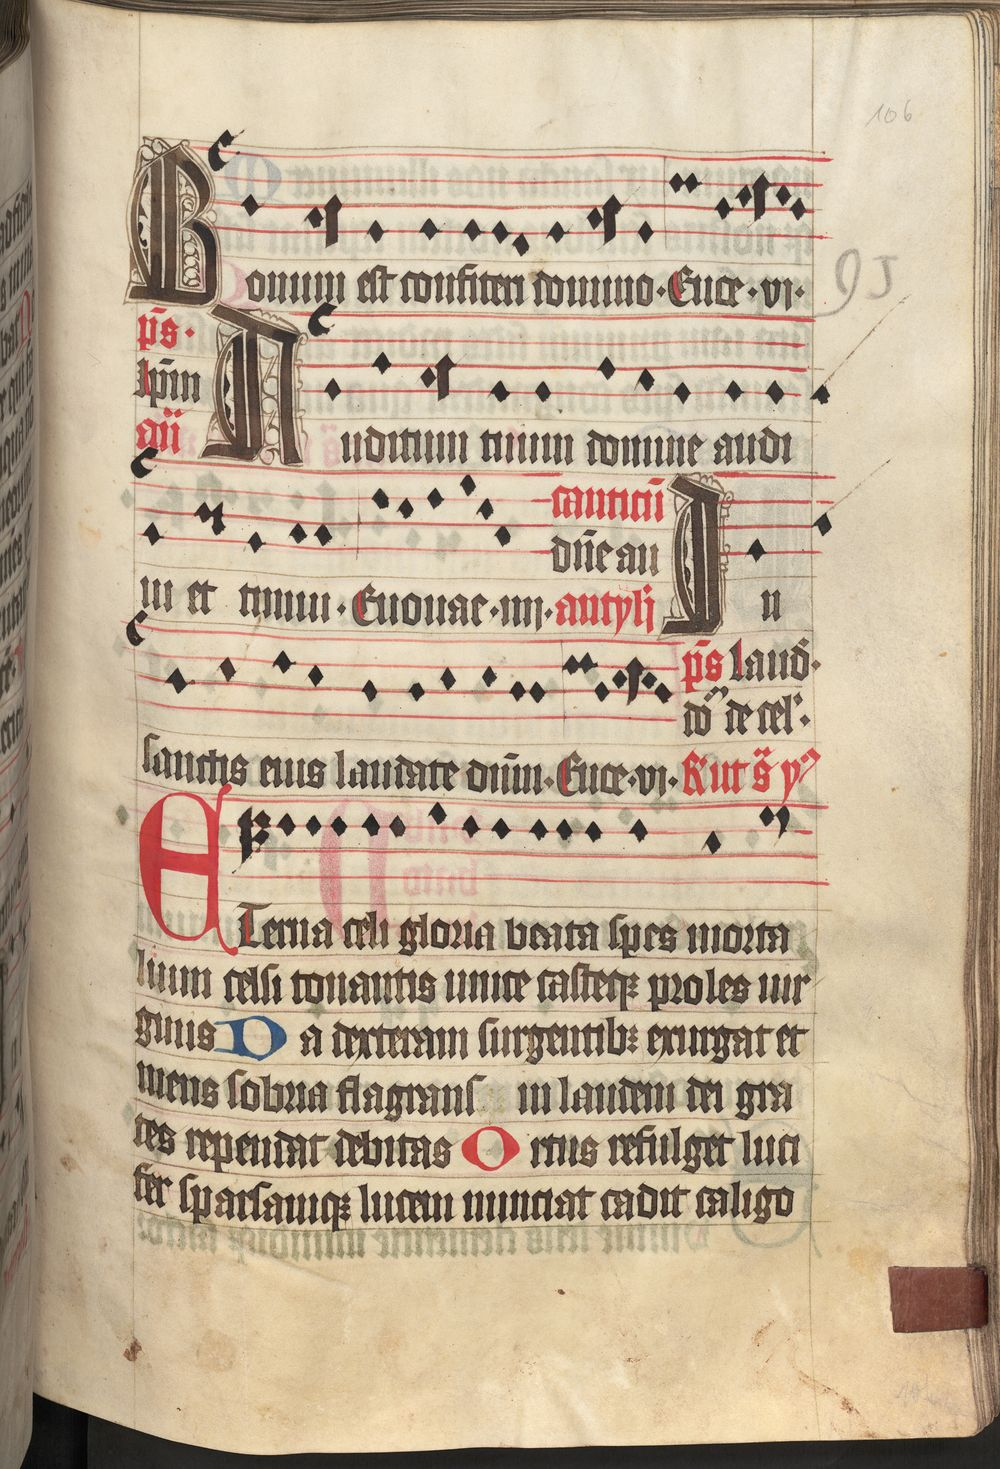 106
Bonum est confiteri domino. Euce. vi.
95
p̄s.
ip̄m
an̄
Auditum tuum domine audi
canticū
dn̄e au
ui et timui. Euouae. iiii. ant yli In
p̄s laud.
dō de cel.
sanctis eius laudate dn̄m. Euce. vi. R ut s̄ y
ETerna celi gloria beata spes morta
lium celsi tonantis unice casteqȝ proles uir
ginis Da dexteram surgentibȝ exurgat et
mens sobria flagrans in laudem dei gra
tes rependat debitas Ortus refulget luci
fer sparsamqȝ lucem nunciat cadit caligo